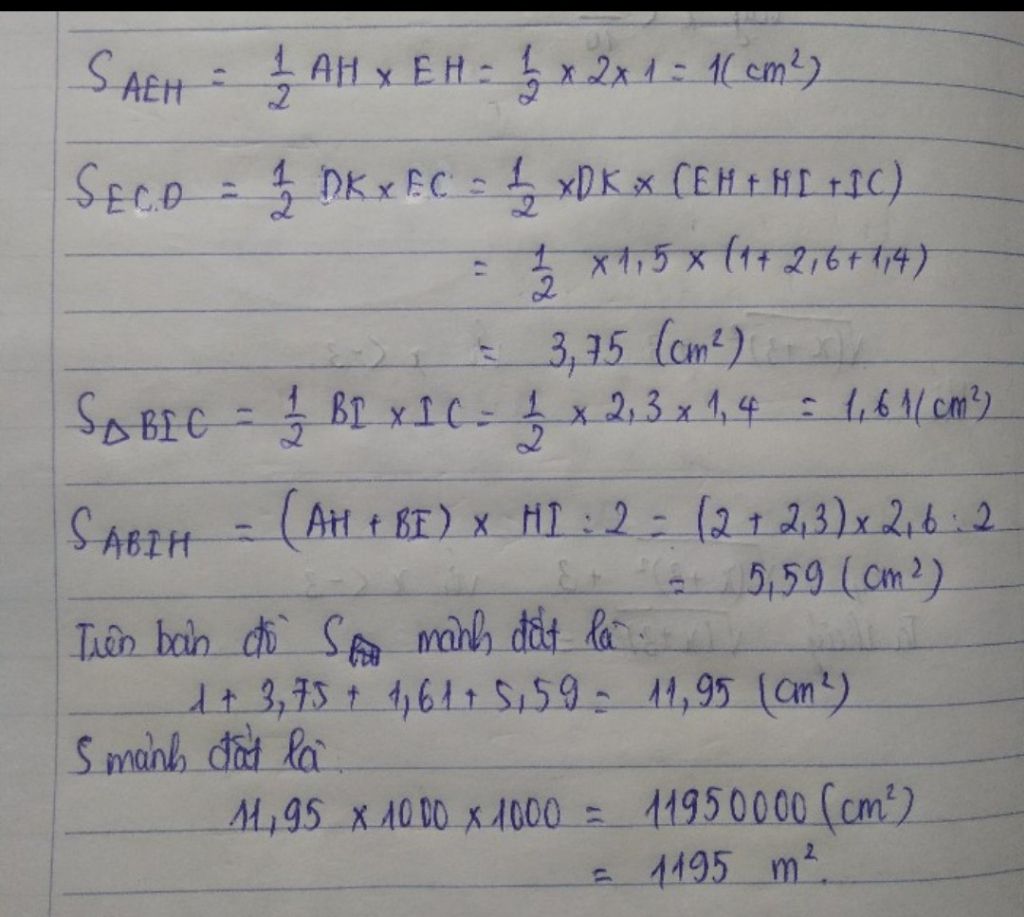 S AEH = 1/2 AH x EH = 1/2 x 2 x 1 = 1( cm²)
S ECD = 1/2 DK x EC = 1/2 x DK x (EH + HI + IC)
= 1/2 x 1,5 x (1 + 2,6 + 1,4)
= 3,75 (cm²)
S Δ BIC = 1/2 BI x IC = 1/2 x 2,3 x 1,4 = 1,61 (cm²)
S ABIH = (AH + BI) x HI : 2 = (2 + 2,3) x 2,6 : 2
= 5,59 (cm²)
Trên bản đồ S mảnh đất là
1 + 3,75 + 1,61 + 5,59 = 11,95 (cm²)
S mảnh đất là
11,95 x 1000 x 1000 = 11950000 (cm²)
= 1195 m².